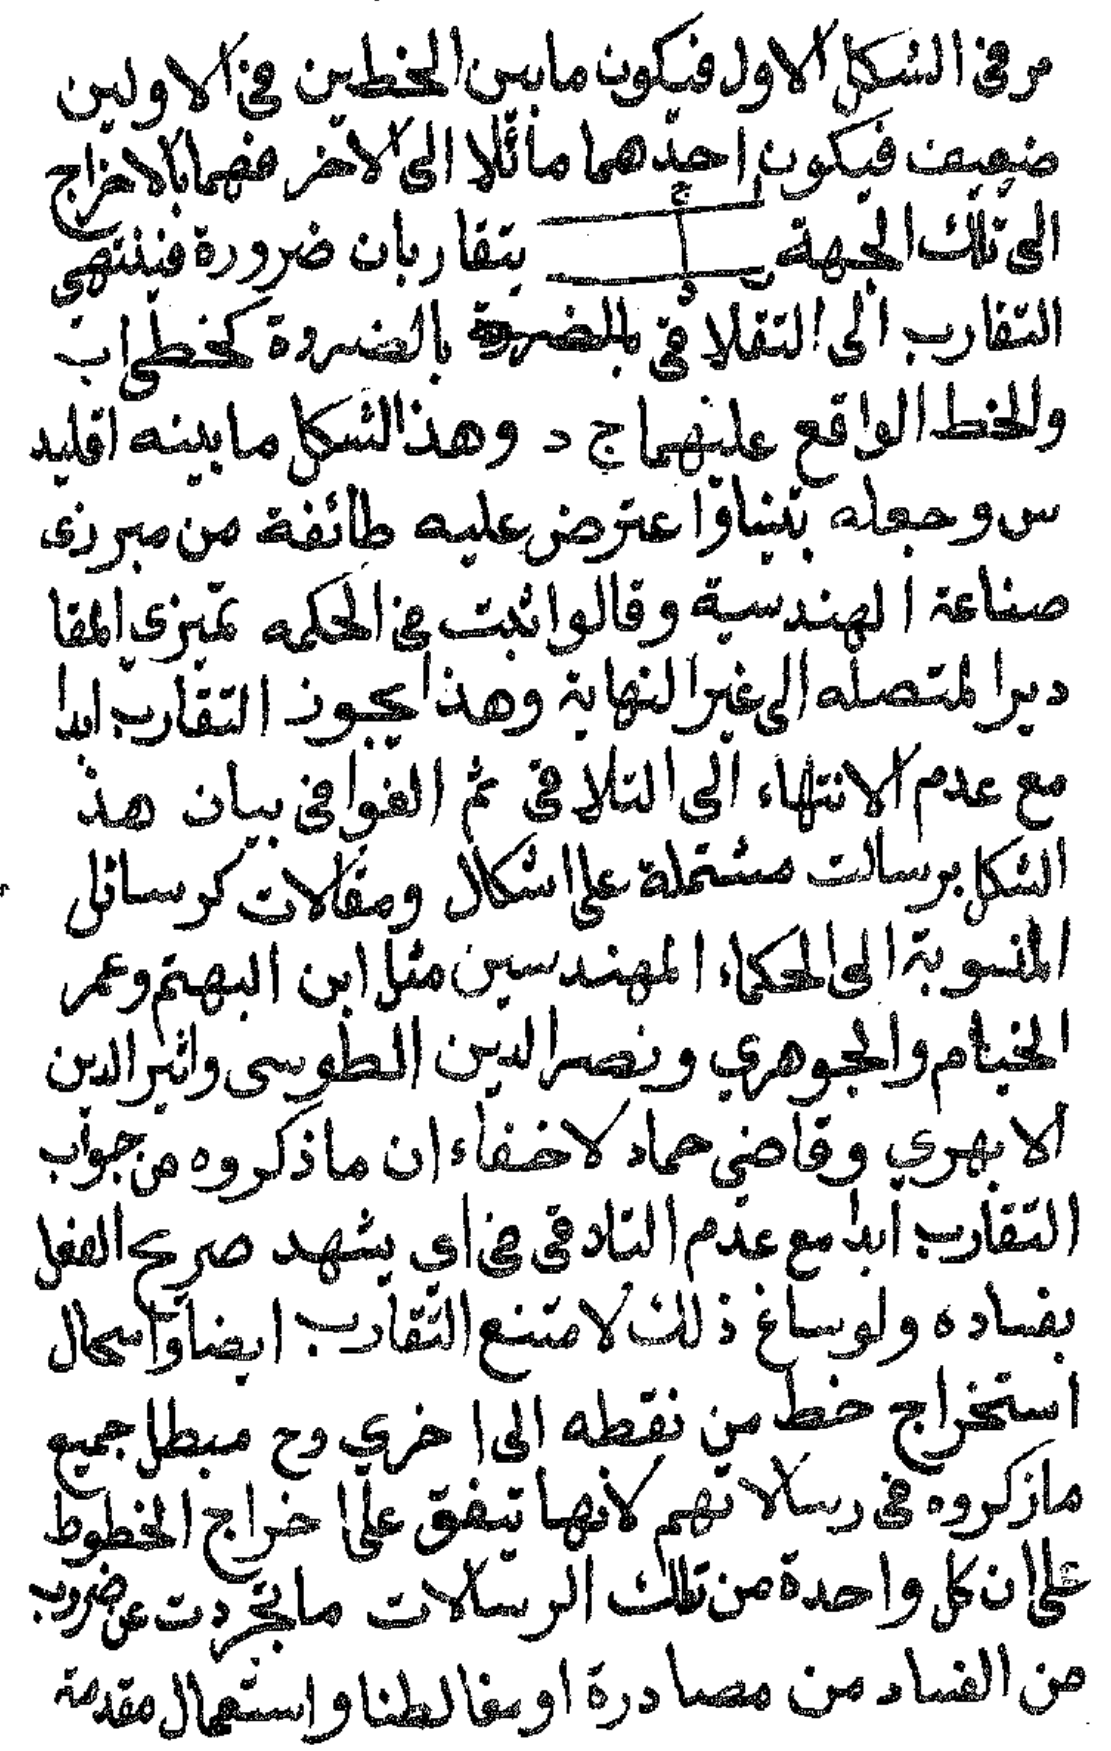 مر فى الشكل الاول فيكون ما بين الخطين فى الاولين
ضعيف فيكون احدهما مائلا الى الاخر فهما بالاخراج
الى تلك الجهة يتقاربان ضرورة فينتهى
التقارب الى التقلاقى بالضرورة كخطى اب
والخط الواقع عليهما ج د وهذا الشكل ما بينه اقليد
س وجعله واعترض عليه طائفة من مبرزى
صناعة الهندسية وقالوا ثبت فى الحكمه المقا
دير المتصله الى غير النهاية وهذا يجوز التقارب ابدا
مع عدم الانتهاء الى التلاقى ثم الفوا فى بيان هذ
الشكل برسالت مشتملة على اشكال ومقالات كرسائل
المنسوبة الى الحكماء المهندسين مثل ابن الهيتم وعمر
الخيام والجوهري ونصر الدين الطوسى واثير الدين
الابهري وقاضي حماد لا خفاء ان ما ذكروه من جواب
التقارب ابدا مع عدم التلاقى فى اى يشهد صريح العقل
بفساده ولو ساغ ذلك لامتنع التقارب ايضا واستحال
استخراج خط من نقطه الى اخري وح مبطل جميع
ما ذكروه فى رسالاتهم لانها تتفق على اخراج الخطوط
على ان كل واحدة من تلك الرسالات ما تجردت عن ضروب
من الفساد من مصادرة او مغالطنا واستعمال مقدمة